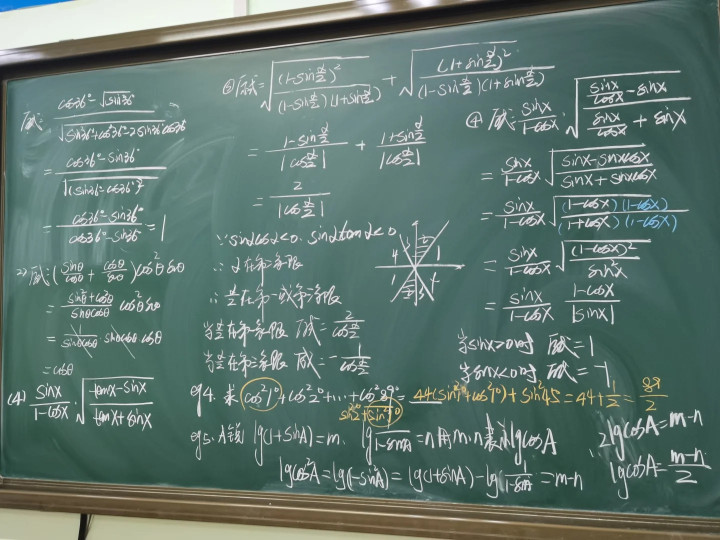 原式= (cos36°-√sin²36°)/√(sin²36°+cos²36°-2sin36°cos36°)
= (cos36°-sin36°)/√(sin36°-cos36°)²
= (cos36°-sin36°)/(cos36°-sin36°) =1
原式=(sinθ/cosθ + cosθ/sinθ)cos²θ sinθ
= (sin²θ+cos²θ)/(sinθcosθ) cos²θ sinθ
= 1/(sinθcosθ) · sinθcosθ cosθ
= cosθ
(4) sinx/(1-cosx) · √((tanx-sinx)/(tanx+sinx))
③原式=√((1-sin α/2)²/((1-sin α/2)(1+sin α/2))) + √((1+sin α/2)²/((1-sin α/2)(1+sin α/2)))
= (1-sin α/2)/|cos α/2| + (1+sin α/2)/|cos α/2|
= 2/|cos α/2|
∵sinαcosα<0. sinαtanα<0
∴ α在第二象限
∴ α/2在第一或第三象限
当α/2在第一象限 原式=2/cos α/2
当α/2在第三象限 原式=-2/cos α/2
④ 原式= sinx/(1-cosx) · √((sinx/cosx-sinx)/(sinx/cosx+sinx))
= sinx/(1-cosx) √((sinx-sinxcosx)/(sinx+sinxcosx))
= sinx/(1-cosx) √((1-cosx)(1-cosx)/((1+cosx)(1-cosx)))
= sinx/(1-cosx) √((1-cosx)²/sin²x)
= sinx/(1-cosx) · (1-cosx)/|sinx|
当sinx>0时 原式=1
当sinx<0时 原式=-1
eg4. 求cos²1°+cos²2°+…+cos²89°=44(sin²1°+cos²1°)+sin²45=44+1/2=89/2
sin²1°
eg5. A锐 lg(1+sinA)=m. lg 1/(1-sinA)=n用m.n表示lgcosA
lgcos²A=lg(1-sin²A)=lg(1+sinA)-lg 1/(1-sinA)=m-n
2lgcosA=m-n
∴ lgcosA=(m-n)/2